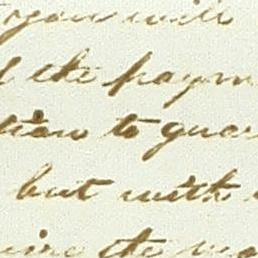 you will
the paym
tion to guar
but with
the